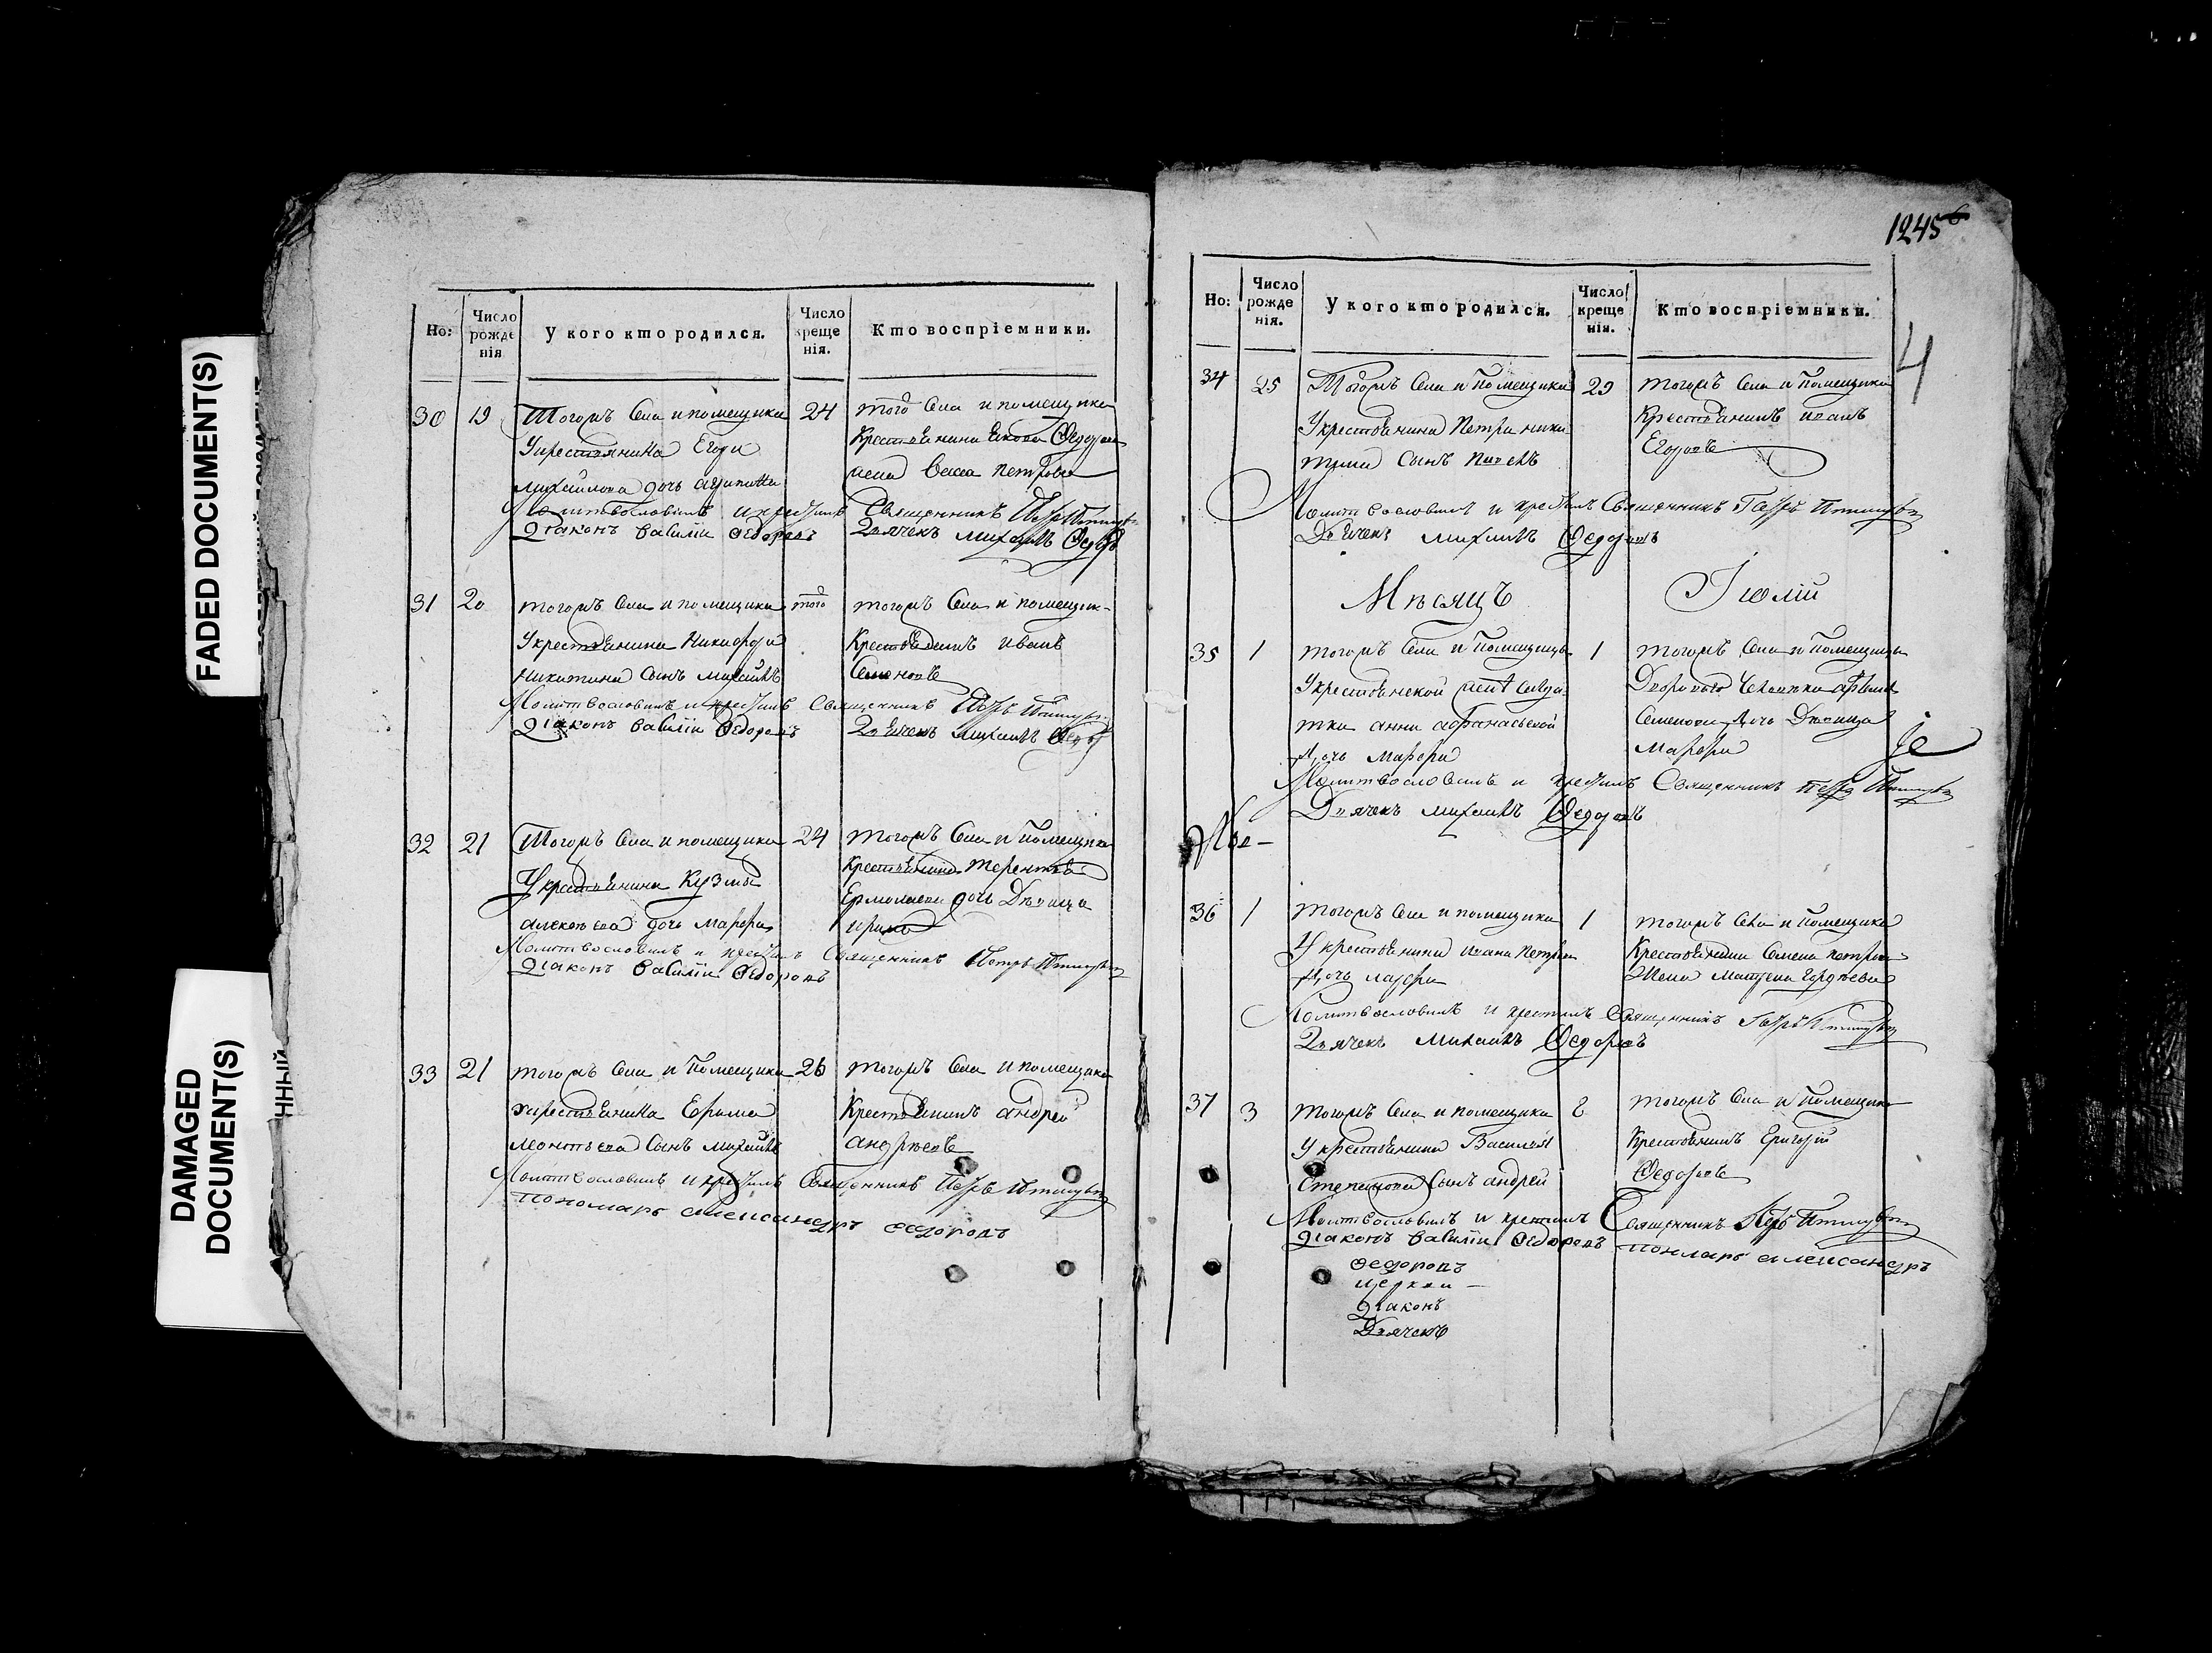 FADED DOCUMENT(S)
DAMAGED
DOCUMENT(S)
Но:
Число
рожде
нія
У кого кто родился.
Число
креще
нія.
Кто воспріемники.
30
19
Тогожъ Села и помещика
Укрестьянина Егора
михайлова дочь
24
того Села и помещика
Крестьянина Якова Федорова
жена Васса петрова
Молитвословилъ и крестилъ Священникъ Петръ
Діаконъ Василій Федоровъ Дьячекъ михаилъ Федоровъ
31
20
тогожъ Села и помещика
Укрестьянина Никифора
Никитина Сынъ михаилъ
того
тогожъ Села и помещик-
Крестьянинъ иванъ
Семеновъ
Молитвословилъ и крестилъ Священникъ Петръ
Діаконъ Василій Федоровъ Дьячекъ михаилъ Федоровъ
32
21
Тогожъ Села и помещика
Укрестьянина Кузмы
алексеева дочь марфа
24
тогожъ Села и помещика
Крестьянина терентья
Ермолаева дочь Девица
ирина
Молитвословилъ и крестилъ Священникъ Петръ
Діаконъ Василій Федоровъ
33
21
тогожъ Села и Помещика
укрестьянина Ефима
леонтьева Сынъ михаилъ
26
тогожъ Села и помещика
Крестьянинъ андрей
андреевъ
Молитвословилъ и крестилъ Священникъ Петръ
пономарь александръ федоровъ
1245
4
Но:
Число
рожде
нія.
У кого кто родился.
Число
креще
нія.
Кто воспріемники.
34
25
Тогожъ Села и Помещика
Укрестьянина Петра ники
тина Сынъ павелъ
29
тогожъ Села и Помещика
Крестьянинъ иванъ
Егоровъ
Молитвословилъ и крестилъ Священникъ Петръ
Дьячекъ михаилъ Федоровъ
Мѣсяцъ Іюлій
35
1
тогожъ Села и Помещика
Укрестьянской женки солда
тки анны афанасьевой
дочь марфа
1
тогожъ Села и Помещика
Дворового Человека
Семенова дочь Девица
марфа
Молитвословилъ и крестилъ Священникъ Петръ
Дьячекъ михаилъ Федоровъ
36
1
тогожъ Села и помещика
Укрестьянина ивана Петрова
дочь марфа
1
тогожъ Села и Помещика
Крестьянина Семена петрова
Жена матрена Гордеева
Молитвословилъ и крестилъ Священникъ Петръ
Дьячекъ михаилъ Федоровъ
37
3
тогожъ Села и помещика
Укрестьянина Василья
Степанова Сынъ андрей
8
тогожъ Села и Помещика
Крестьянинъ Григорій
Федоровъ
Молитвословилъ и крестилъ Священникъ Петръ
Діаконъ Василій Федоровъ пономарь александръ
федоровъ
церкви
Діаконъ
Дьячекъ